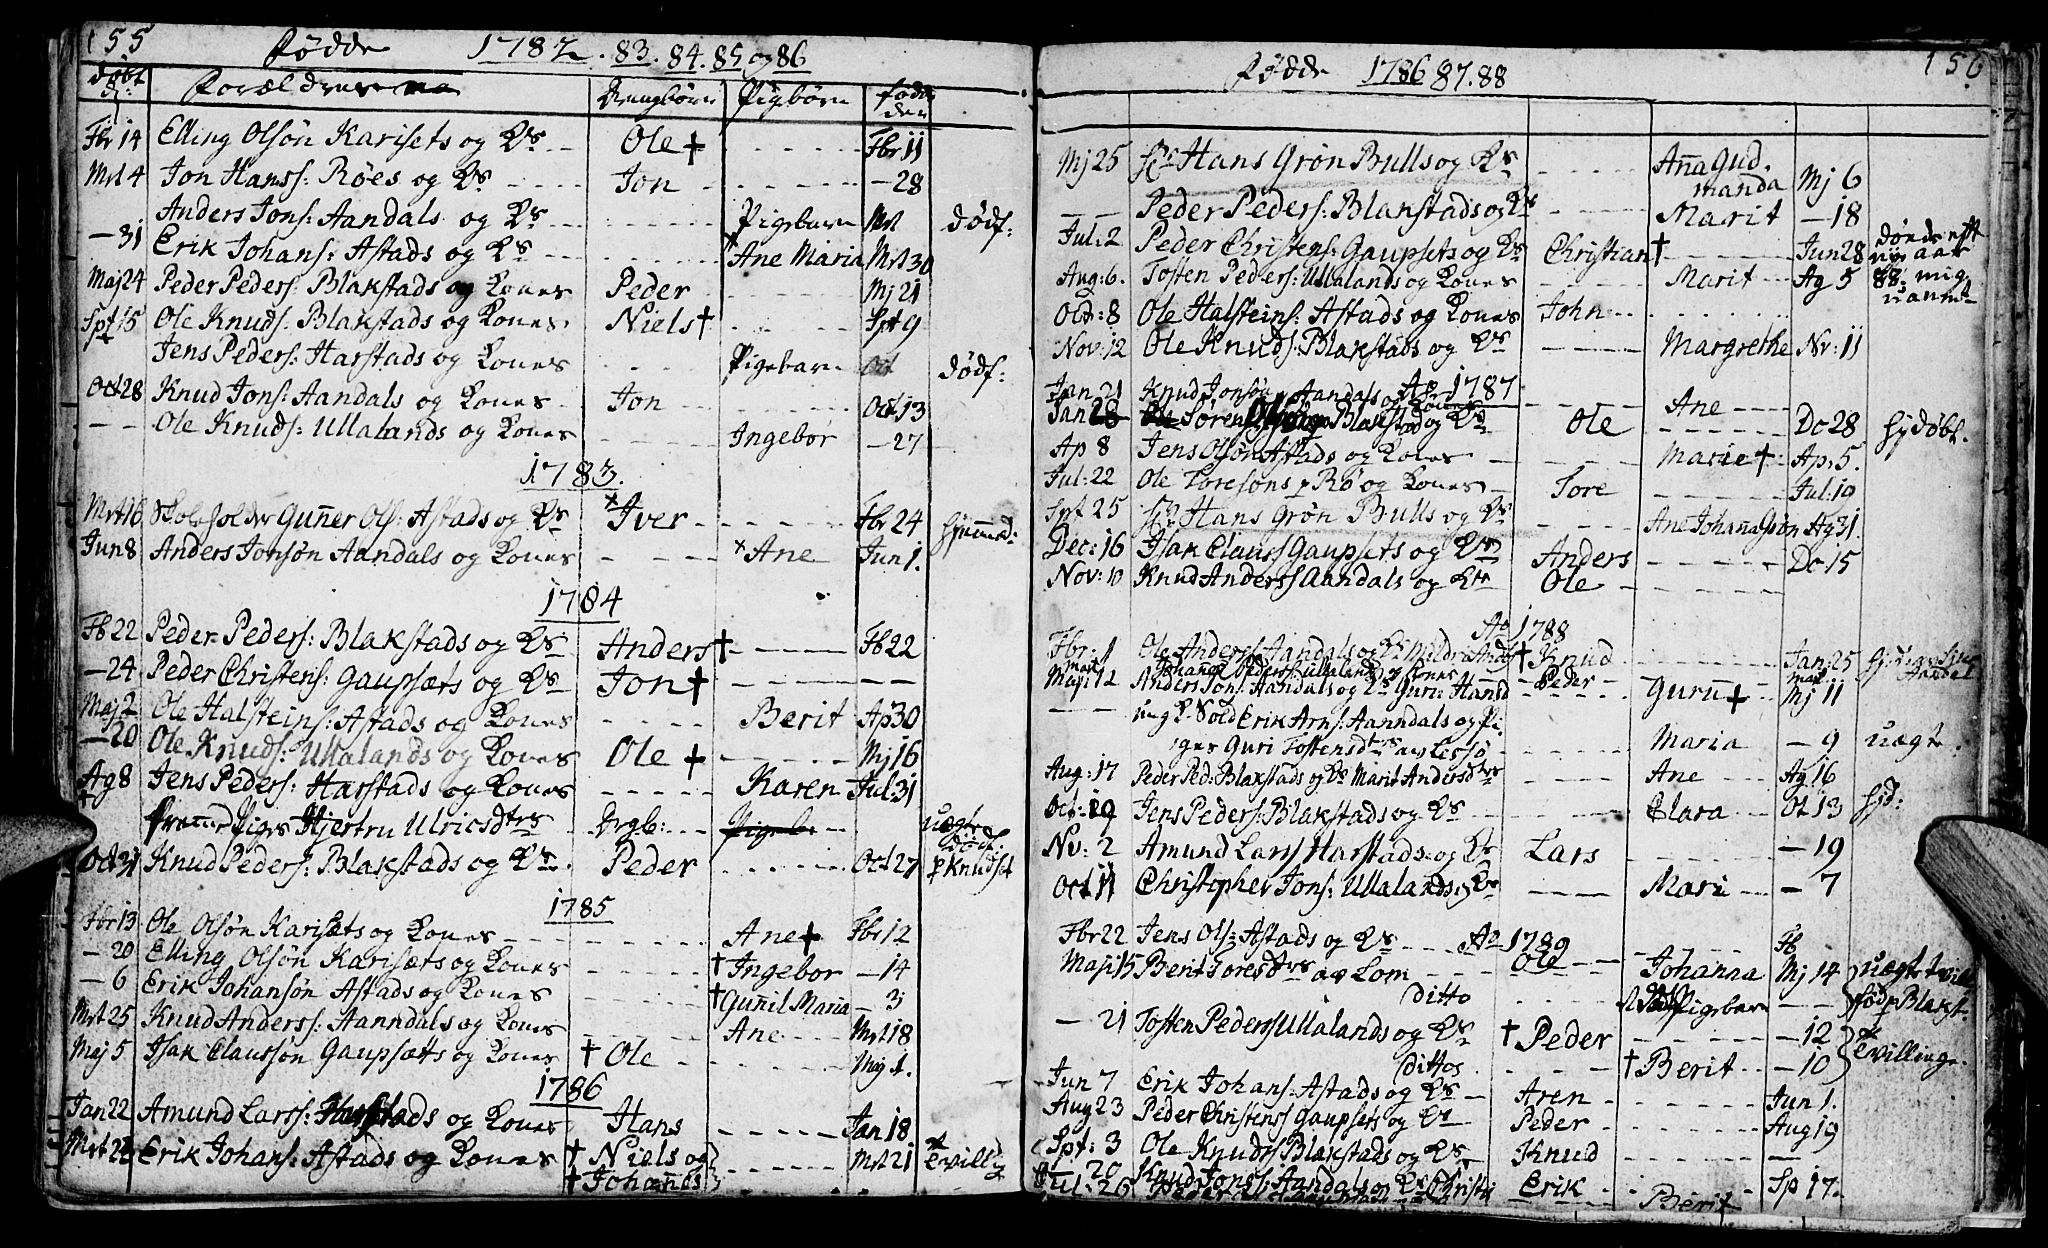 155 Fødde 1782. 83. 84. 85 og 86
døbt d: Forældrene Drengbørn Pigbørn fødde den
Fbr 14 Elling Olsøn Karisets og Ks Ole † Fbr 11
Mrt 4 Jon Hanss: Røes og Ks Jon - 28
Anders Jons: Aandals og Ks Pigebarn Mrt dødf:
- 31 Erik Johans: Astads og Ks Ane Maria Mrt 30
Maj 24 Peder Peders: Blakstads og Kones Peder Mj 21
Spt 15 Ole Knuds: Blakstads og Kones Niels † Spt 9
† Jens Peders: Harstads og Kones Pigebarn Oct dødf:
Oct 28 Knud Jons: Aandals og Kones Jon Oct 13
- - Ole Knuds: Ullalands og Kones Ingebor - 27
1783.
Mrt 16 Skoleholder Guñer Ols: Astads og Ks × Iver Fbr 24 hjemmed:
Jun 8 Anders Jonsøn Aandals og Kones × Ane Jun 1.
1784
Fb 22 Peder Peders: Blakstads og Ks Anders † Fb 22
- 24 Peder Christens: Gaupsæts og Ks Jon † - -
Maj 2 Ole Halsteins: Astads og Kones Berit Ap 30
- 20 Ole Knuds: Ullalands og Kones Ole † Mj 16
Ag 8 Jens Peders: Harstads og Kones Karen Jul: 31
† Piges Hjertru Ulricsdtrs Drgb: Pigeb: uægte dødf:
Oct 31 Knud Peders: Blakstads og Ks Peder Oct 27 p Knudset
1785
Fbr 13 Ole Olsøn Karisæts og Kones Ane † Fbr 12
- 20 Elling Olsøn Karisæts og Kones † Ingebor - 14
- 6 Erik Johansøn Astads og Kones † Guñil Maria - 3
Mrt 25 Knud Anderss: Aanndals og Kones Ane Mrt 18
Maj 5 Isak Claussøn Gaupsætts og Kones † Ole Maj 1.
1786
Jan 22 Amund Larss: Harstads og Kones Hans Jan 18
Mrt 22 Erik Johans: Astads og Kones † Niels og Mrt 21 Tvill
† Johanes
Fødde 1786 87. 88 156
Mj 25 Hr Hans Grøn Bulls og Ks Aña Gud. Mj 6
manda
- - Peder Peders: Blakstads og Ks Marit - 18
Jul: 2 Peder Christens: Gaupsets og Ks Christian † Jun 28
Aug: 6. Tosten Peders: Ullalands og Kones Marit Ag 5
Oct: 8 Ole Halsteins: Astads og Kones John
Nov: 12 Ole Knuds: Blakstads og Ks Margrethe Nv: 11
Ao 1787
Jan 21 Knud Jonsøn Aandals og Kones Ane
Jan 28 Søren Blakstad og Ks Ole Dc 28 hjdøbt.
Ap 8 Jens Olsøn Astads og Kones Marie † Ap: 5.
Jul: 22 Ole Toresøns p Rø og Kones Tore Jul: 19
Spt 25 Hr Hans Grøn Bulls og Ks Ane Johaña Grøn Ag 31.
Dec: 16 Isak Clauss Gaupsets og Ks Anders Dc 15
Nov: 10 Knud Anderss Aandals og Ks Ole
Ao 1788
Fbr: 1 Ole Anderss Aandals og Ks Mildri Ands † Knud Jan: 25
Peders: Ullaland og Kones Peder
Maji 12 Anders Jons: Aandals og Ks Guru Hansd Guru † Mj 11
- - Sold Erik Arns: Aanndals og Pi
ges Guri Tostensdtrs av Lessø Maria - 9 uægte.
Aug: 17 Peder Ped: Blakstads og Ks Marit Andersdtrs Ane Ag 16
Oct: 19 Jens Peders: Blakstads og Ks Clara Ot 13 hjd:
Nv: 2 Amund Larss Harstads og Ks Lars - 19
Oct 11 Christopher Jons: Ullalands og Ks Mari - 7
Ao 1789
Fbr 22 Jens Ols: Astads og Ks Ole Fb
Maji 15 Berit av Lom Johanna Mj 14 uægte tvill
ditto Pigebarn - - fød p Blakst.
- 21 Tosten Peders Ullalands og Ks † Peder - 12
dittos † Berit - 10 Tvillinge.
Jun 7 Erik Johans: Astads og Ks Aren Jun 1.
Aug 23 Peder Christens Gaupsets og Ks Peder Aug 19
Spt: 3 Ole Knuds Blakstads og Ks Knud -
- 20 Knud Jons: Aandals og Ks Christi Erik Sp 17.
Jul- 26 Berit